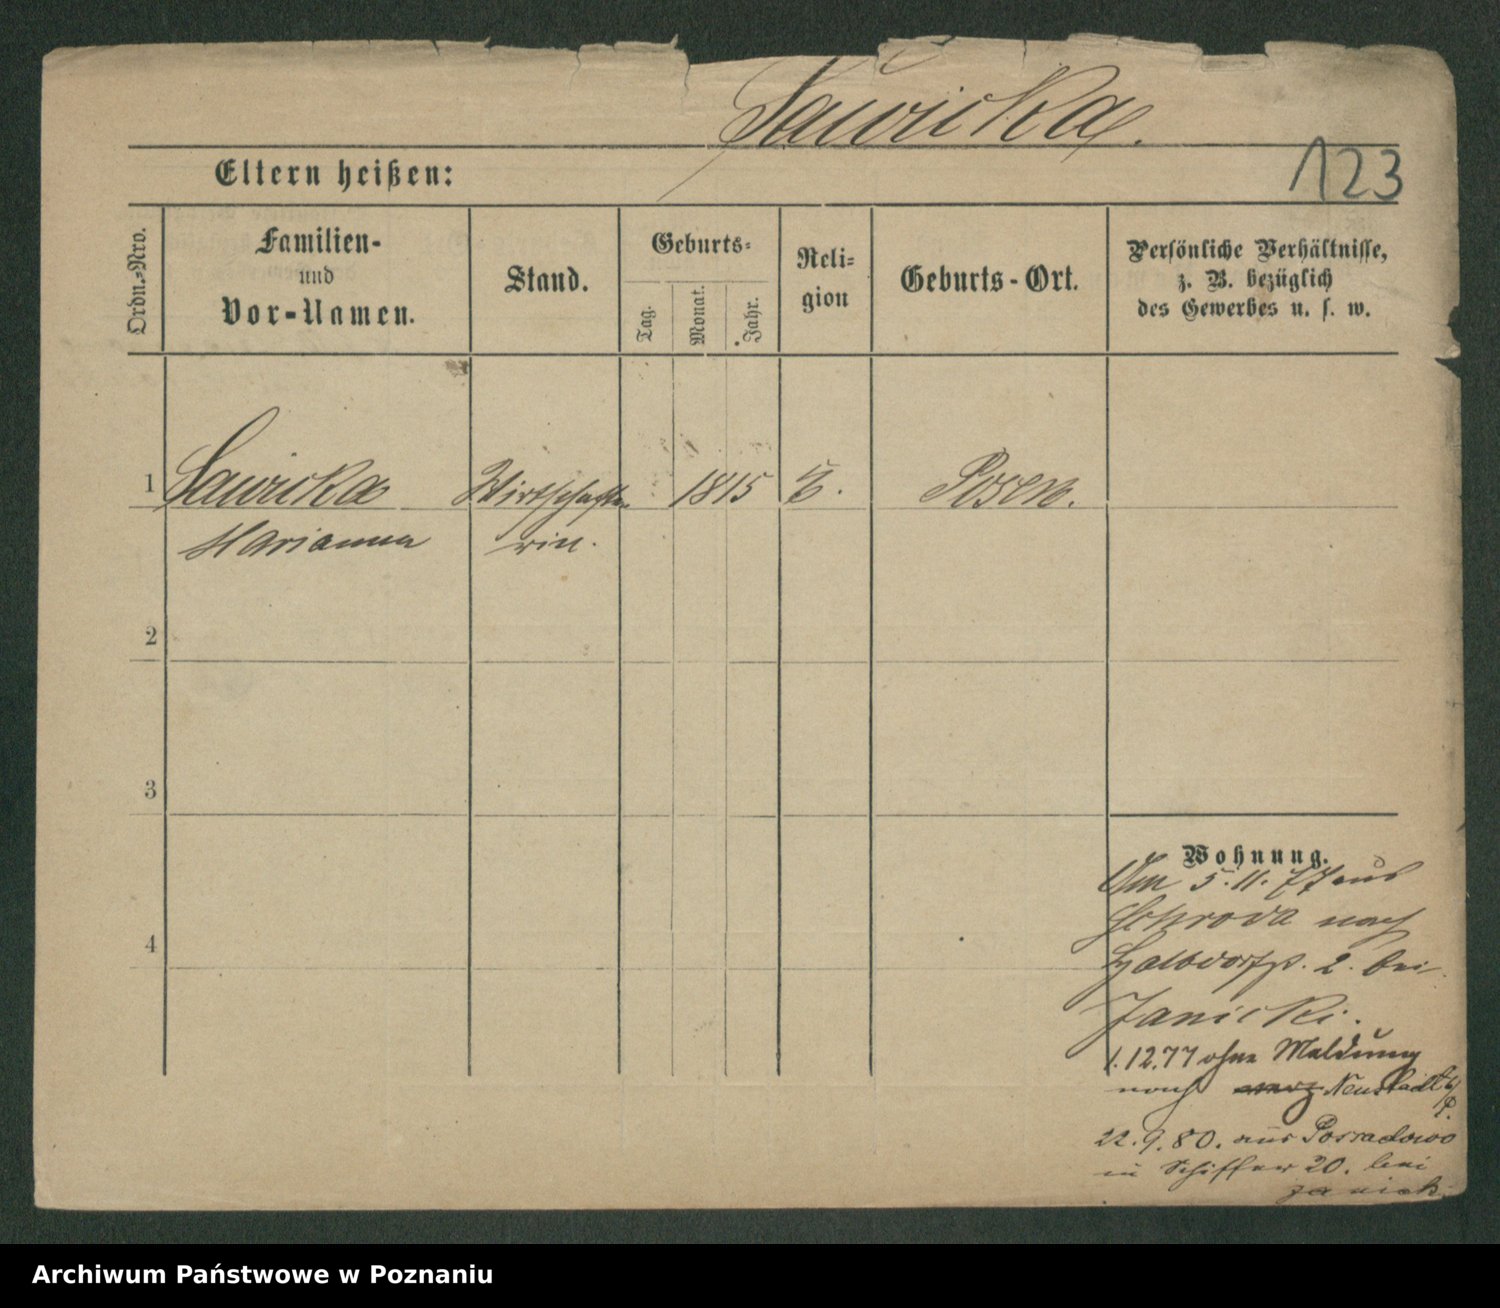 Sawicka.
123
Eltern heißen:
Ordn.-Nro.
Familien-
und
Vor-Namen.
Stand.
Geburts-
Tag.
Monat.
Jahr.
Reli-
gion
Geburts-Ort.
Persönliche Verhältnisse,
z. B. bezüglich
des Gewerbes u. s. w.
1 Sawicka Wirthschafte- 1815 Posen.
Marianna rin.
2
3
4
Wohnung.
Am 5.11.77 aus
Schroda nach
Halbdorfstr. 2. bei
Janicki.
1.12.77 ohne Meldung
nach Neustadt b/
P.
22.9.80. aus Posradowo
in Schiffer 20. bei
Janick.
Archiwum Państwowe w Poznaniu